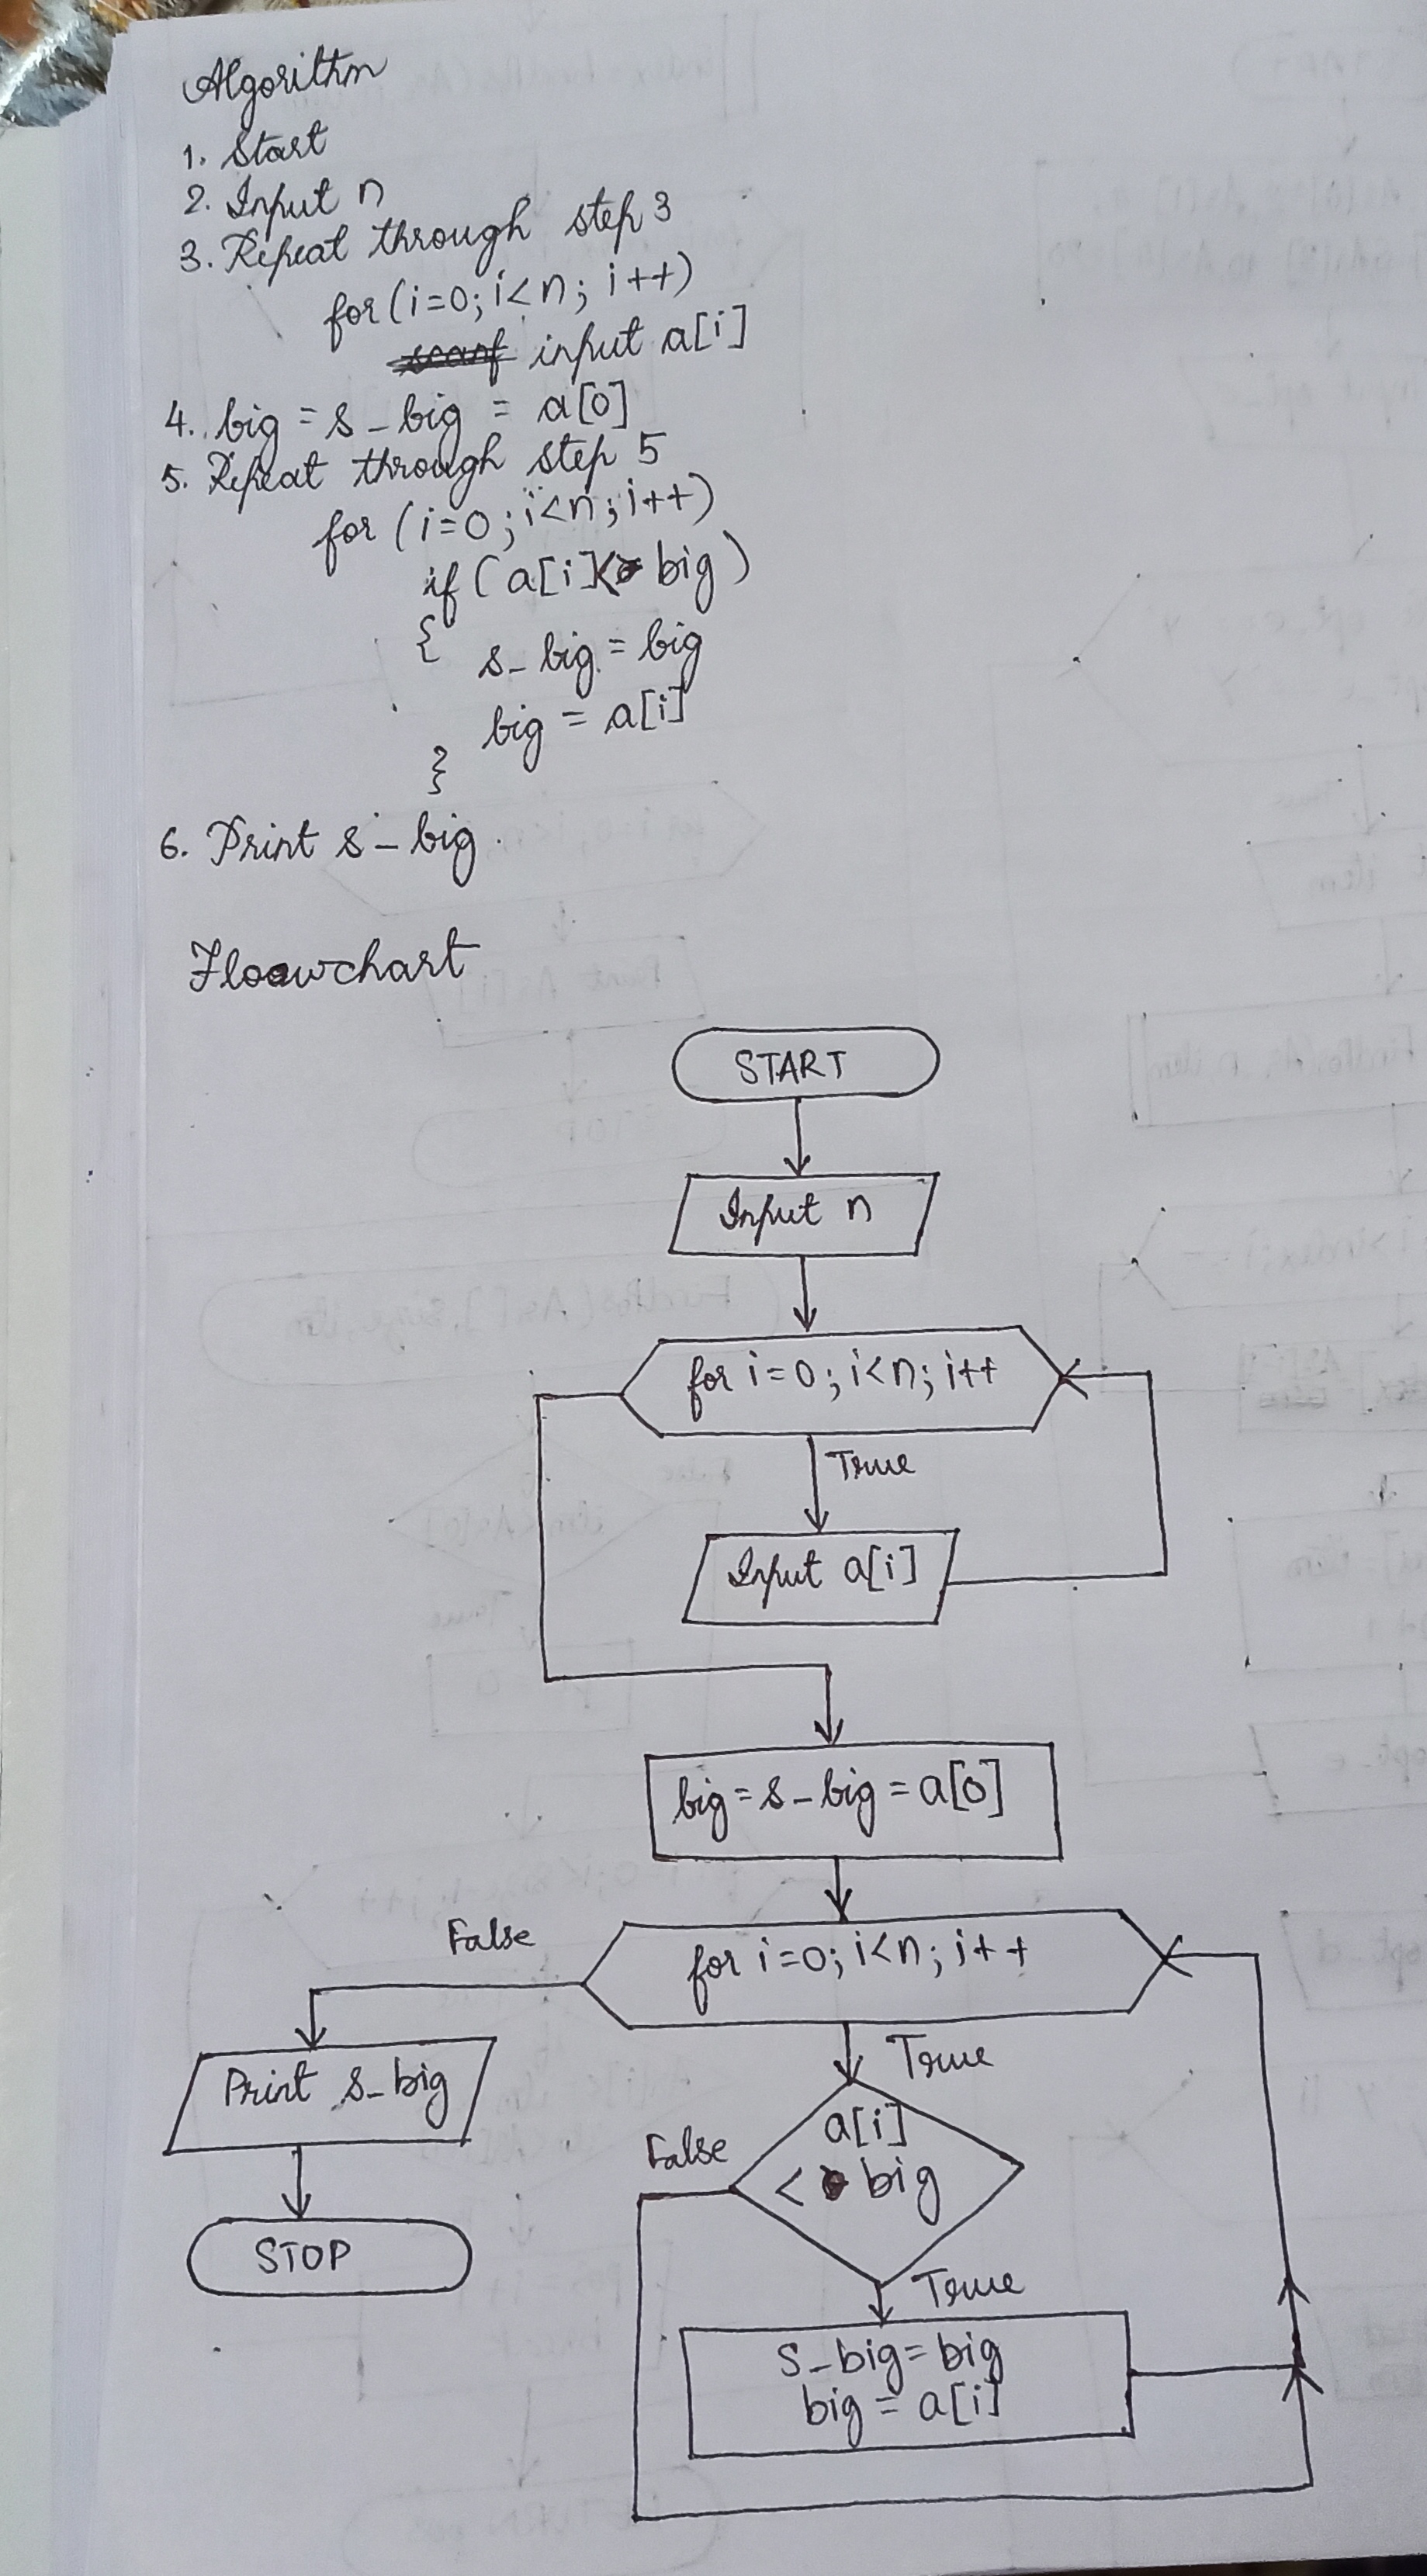 Algorithm
1. Start
2. Input n
3. Repeat through step 3
for (i=0; i<n; i++)
input a[i]
4. big = s_big = a[0]
5. Repeat through step 5
for (i=0; i<n; i++)
if (a[i] < big)
{ s_big = big
big = a[i]
}
6. Print s_big.
Floowchart
START
Input n
for i=0; i<n; i++
True
Input a[i]
big = s_big = a[0]
False
for i=0; i<n; i++
True
Print s_big
a[i]
< big
False
STOP
True
s_big = big
big = a[i]